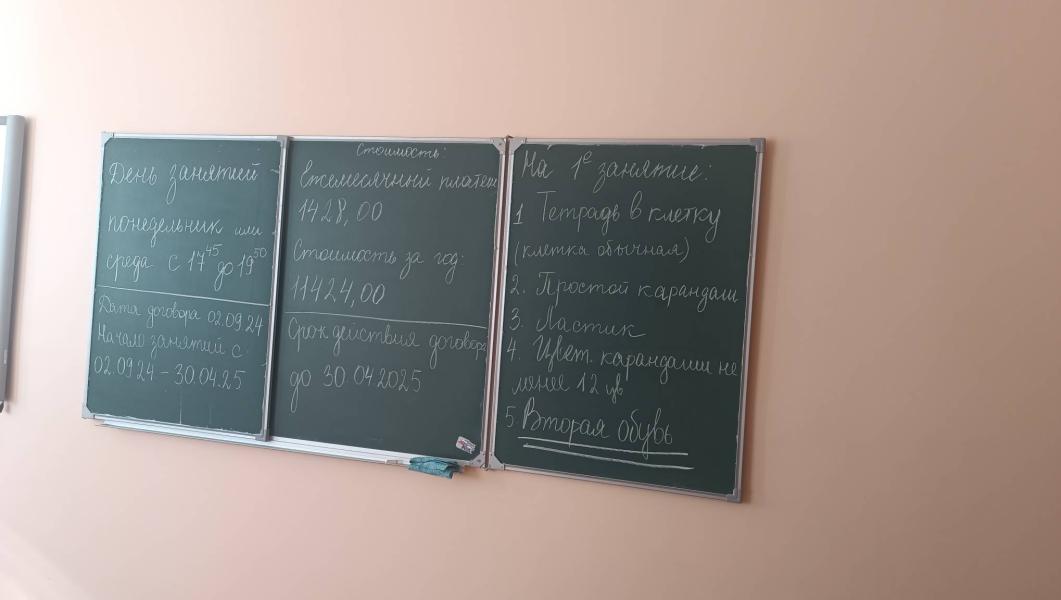 День занятий -
понедельник или
среда с 17⁴⁵ до 19⁵⁰
Дата договора 02.09.24
Начало занятий с
02.09.24 - 30.04.25
Стоимость:
Ежемесячный платеж
1428,00
Стоимость за год:
11424,00
Срок действия договора
до 30.04.2025
На 1ᵉ занятие:
1 Тетрадь в клетку
(клетка обычная)
2. Простой карандаш
3. Ластик
4. Цвет. карандаши не
менее 12 цв
5. Вторая обувь